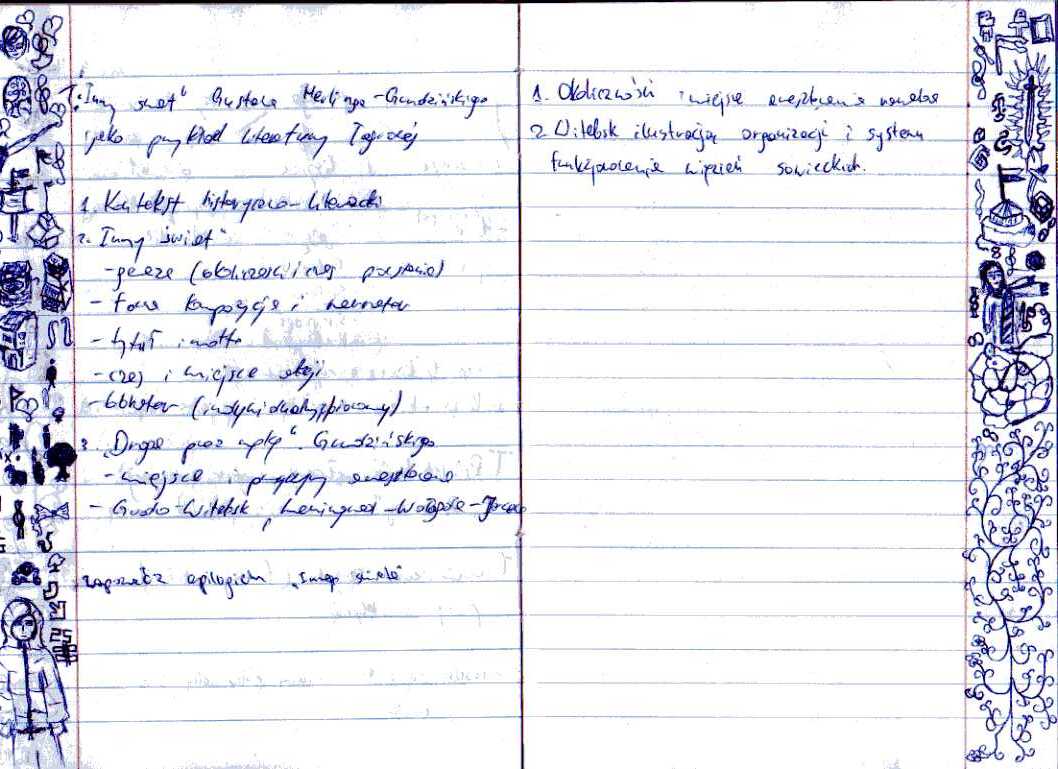 T: „Inny świat" Gustawa Herlinga-Grudzińskiego
jako przykład literatury łagrowej
1. Kontekst historyczno-literacki
2. „Inny świat"
- geneza (okoliczności i czas powstania)
- forma kompozycja i narrator
- tytuł i motto
- czas i miejsce akcji
- bohater (indywidualny, zbiorowy)
3. „Droga przez mękę" Grudzińskiego
- miejsce i przyczyny aresztowania
- Grodno-Witebsk, Leningrad-Wołogda-Jercewo
z epilogiem „Innego świata"
1. Okoliczności i miejsce aresztowania
2. Witebsk ilustracją organizacji i systemu
funkcjonowania więzień sowieckich.